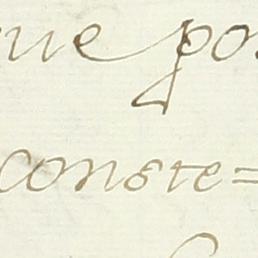 que po
conste=